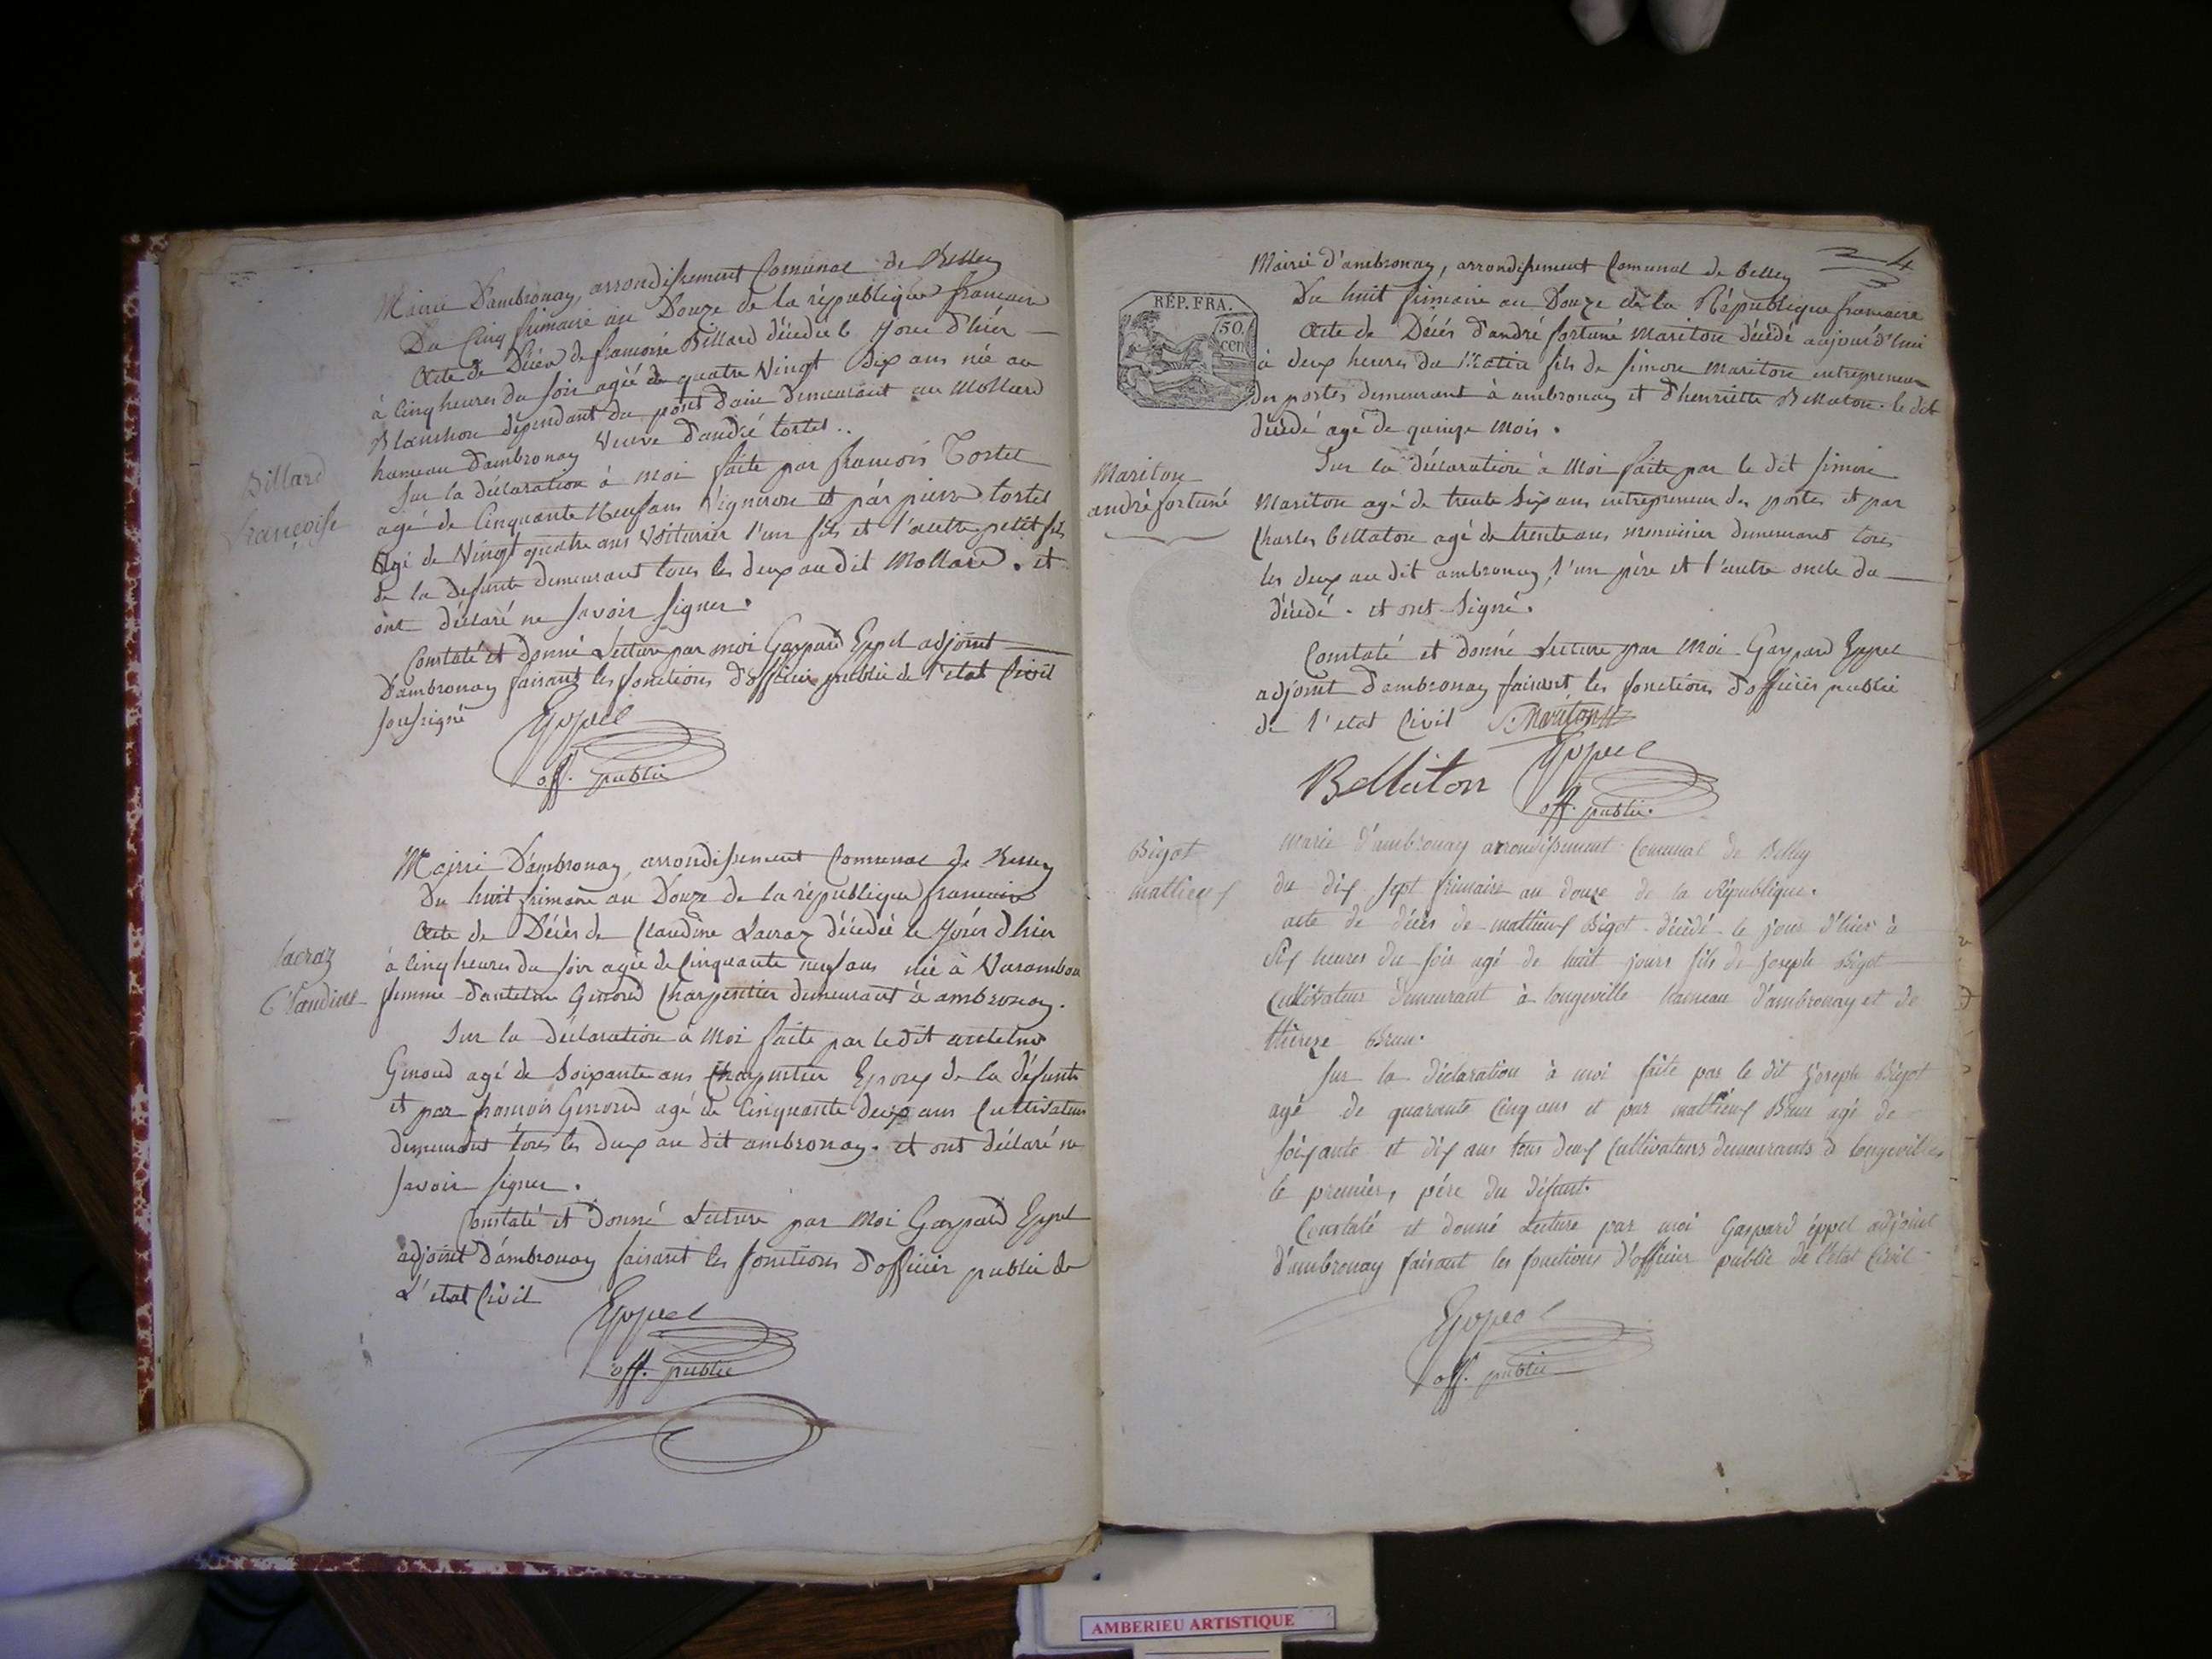 Mairie D'ambronay, arrondissement Comunal de Belley
Du Cinq frimaire an Douze de la république francaise
Acte de Décès de francoise Billard décédée le Jour d'hiér
à Cinq heures du soir agéé de quatre Vingt Six ans née au
Blanchon dépendant du pont d'ain demeurant au Mollard
hameau D'ambronay Veuve d'andré tortet ..
Sur la déclaration à moi faite par francois Tortet
agé de Cinquante Neuf ans Vigneron et par pierre tortet
Agé de Vingt quatre ans Voiturier l'un fils et l'autre petit fils
de la Defunte demeurant tous les deux au dit Mollard. et
ont déclaré ne Savoir Signer.
Billard
françoise
Constaté et donné Lecture par moi Gaspard Eppel adjoint
D'ambronay faisant les fonctions d'officier public de l'etat Civil
soussigné Eppel
off. public
Mairie D'ambronay, arrondissement Comunal de Belley
Du huit frimaire an Douze de la république francaise
Acte de Décès de Claudine Lacraz décédée le Jour d'hier
à Cinq heures du soir agée de Cinquante neuf ans née à Varambon
femme d'antelme Genoud Charpentier demeurant à ambronay.
Lacraz
Claudine
Sur la déclaration à Moi faite par le dit antelme
Genoud agé de Soixante ans Charpentier Epoux de la défunte
et par francois Genoud agé de Cinquante deux ans Cultivateur
demeurant tous les deux au dit ambronay. et ont déclaré ne
Savoir Signer.
Constaté et Donné Lecture par Moi Gaspard Eppel
adjoint D'ambronay faisant les fonctions D'officier public de
L'etat Civil Eppel
off. public
4
Mairie d'ambronay, arrondissement Comunal de belley
Du huit frimaire an Douze de la République francaise
Acte de Décès d'andré fortuné Mariton décédé aujourd'hui
à deux heures du Matin fils de Simon Mariton entrepreneur
des postes demeurant à ambronay et d'henriette Bellaton. le dit
décédé agé de quinze Mois.
RÉP. FRA.
50.
CEN
Mariton
andré fortuné
Sur la déclaration à Moi faite par le dit Simon
Mariton agé de trente Six ans entrepreneur des postes et par
Charles bellaton agé de trente ans menuisier demeurant tous
les deux au dit ambronay, l'un père et l'autre oncle du
décédé. et ont Signé.
Constaté et donné Lecture par Moi Gaspard Eppel
adjoint D'ambronay faisant les fonctions d'officier public
de l'etat Civil S. Mariton
Bellaton Eppel
off. public.
Bigot
mathieux
marie d'ambronay arrondissement Comunal de Belley
du dix sept frimaire an douze de la République.
acte de décès de mathieux Bigot décédé le jour d'hier à
Six heures du soir agé de huit jours fils de joseph Bigot
Cultivateur demeurant à longeville hameau d'ambronay et de
thérèze Brun.
Sur la déclaration à moi faite par le dit joseph Bigot
agé de quarante Cinq ans et par mathieux Brun agé de
soixante et dix ans tous deux Cultivateurs demeurants à longeville
le premier, père du défunt.
Constaté et donné Lecture par moi Gaspard éppel adjoint
d'ambronay faisant les fonctions d'officier public de l'état Civil
Eppel
off. public
AMBERIEU ARTISTIQUE